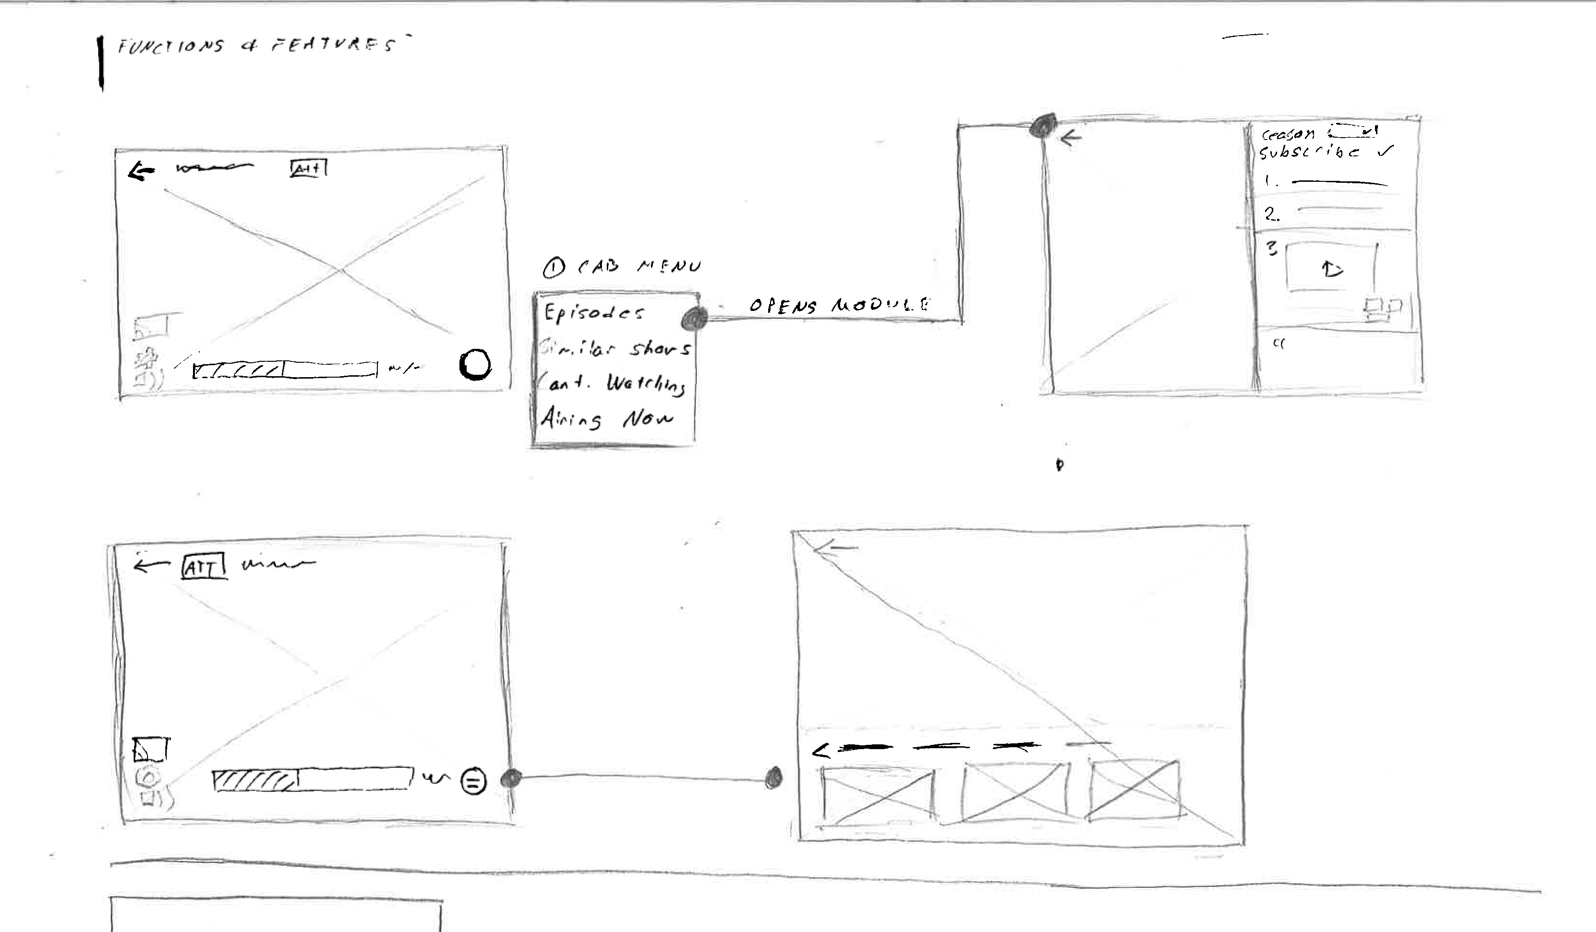 FUNCTIONS & FEATURES
ATT
① CAB MENU
Episodes
Similar shows
Cont. Watching
Airing Now
OPENS MODULE
Season
Subscribe ✓
1.
2.
3
4
ATT